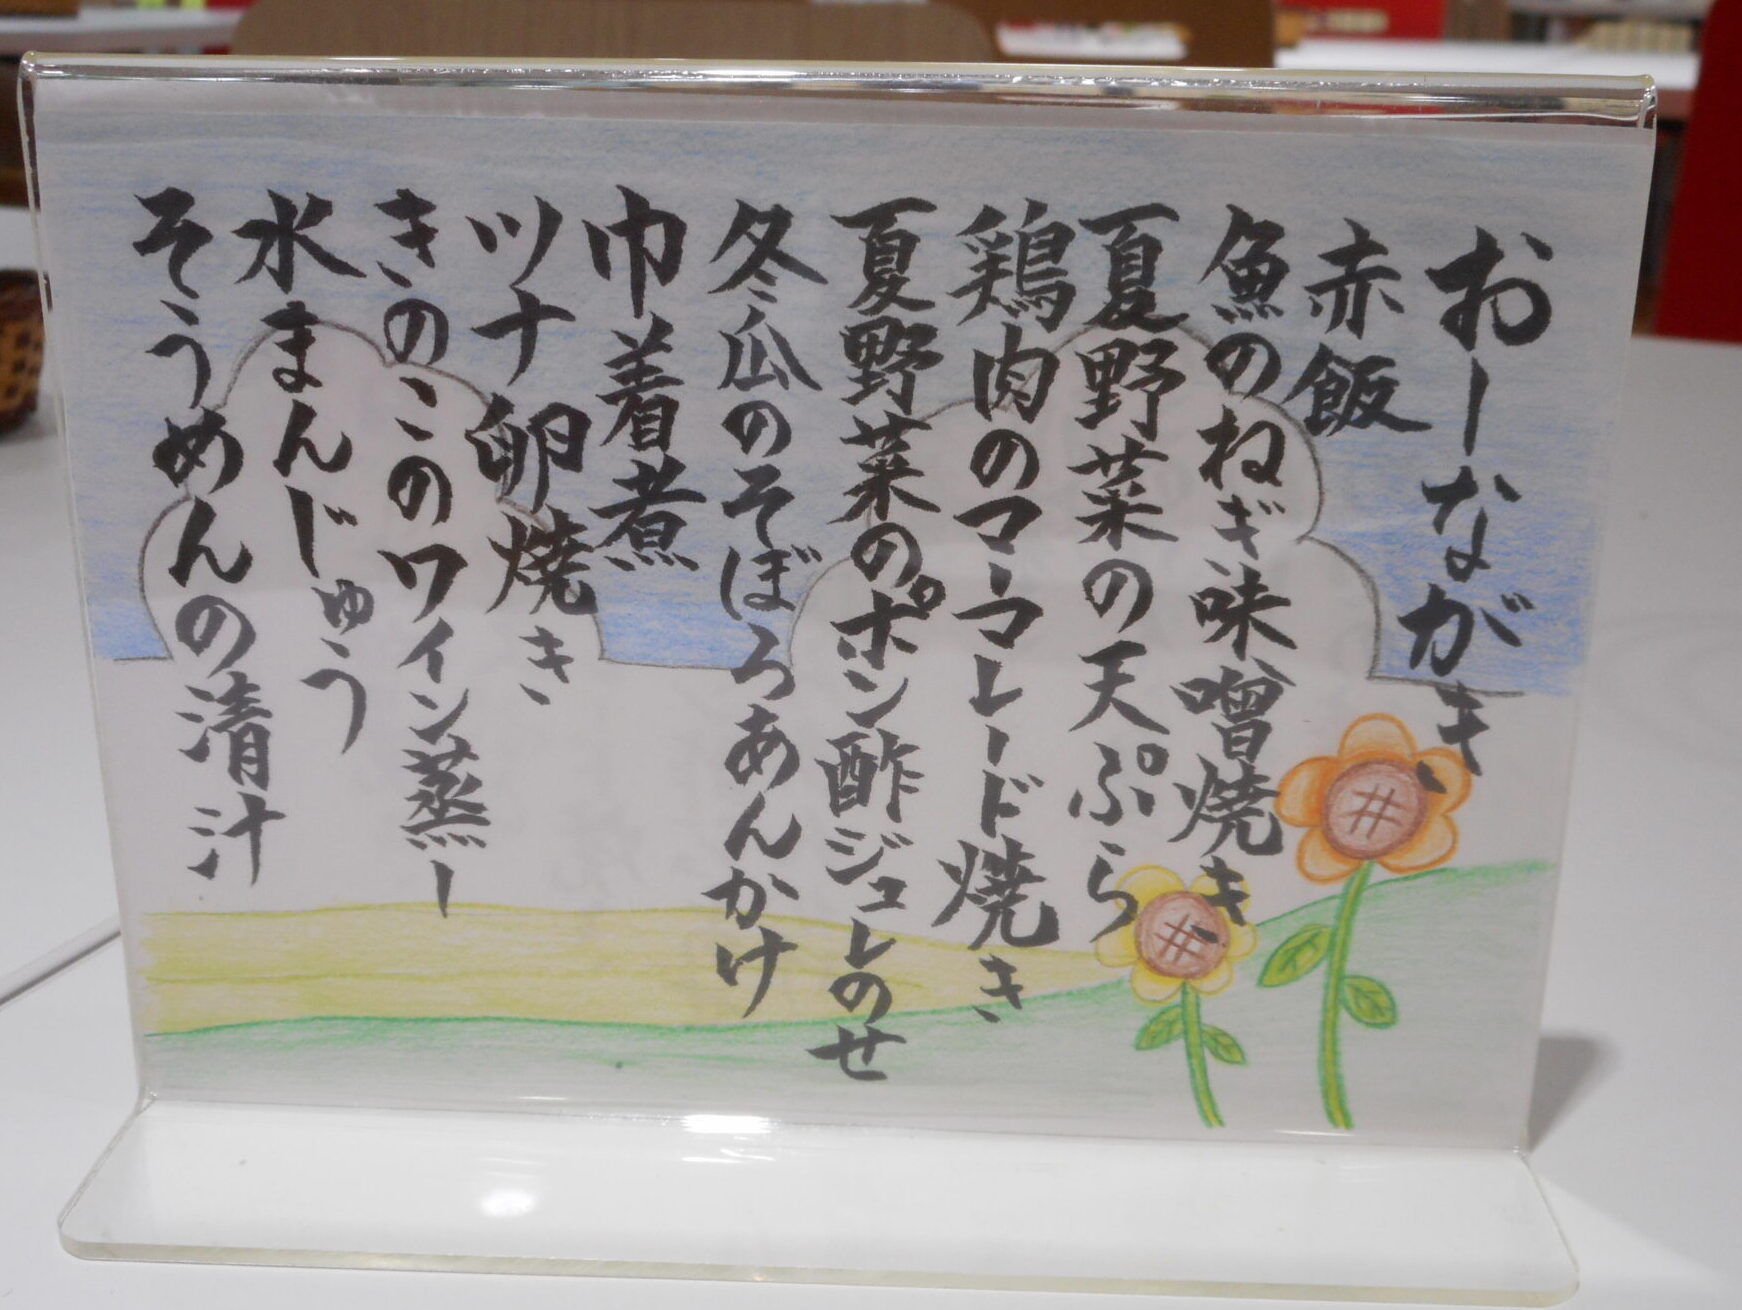 おーながき
赤飯
魚のねぎ味噌焼き
夏野菜の天ぷら
鶏肉のマーマレード焼き
夏野菜のポン酢ジュレのせ
冬瓜のそぼろあんかけ
巾着煮
ツナ卵焼き
きのこのワイン蒸ー
水まんじゅう
そうめんの清汁